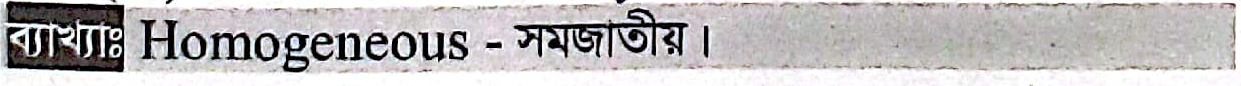 ব্যাখ্যাঃ Homogeneous - সমজাতীয়।